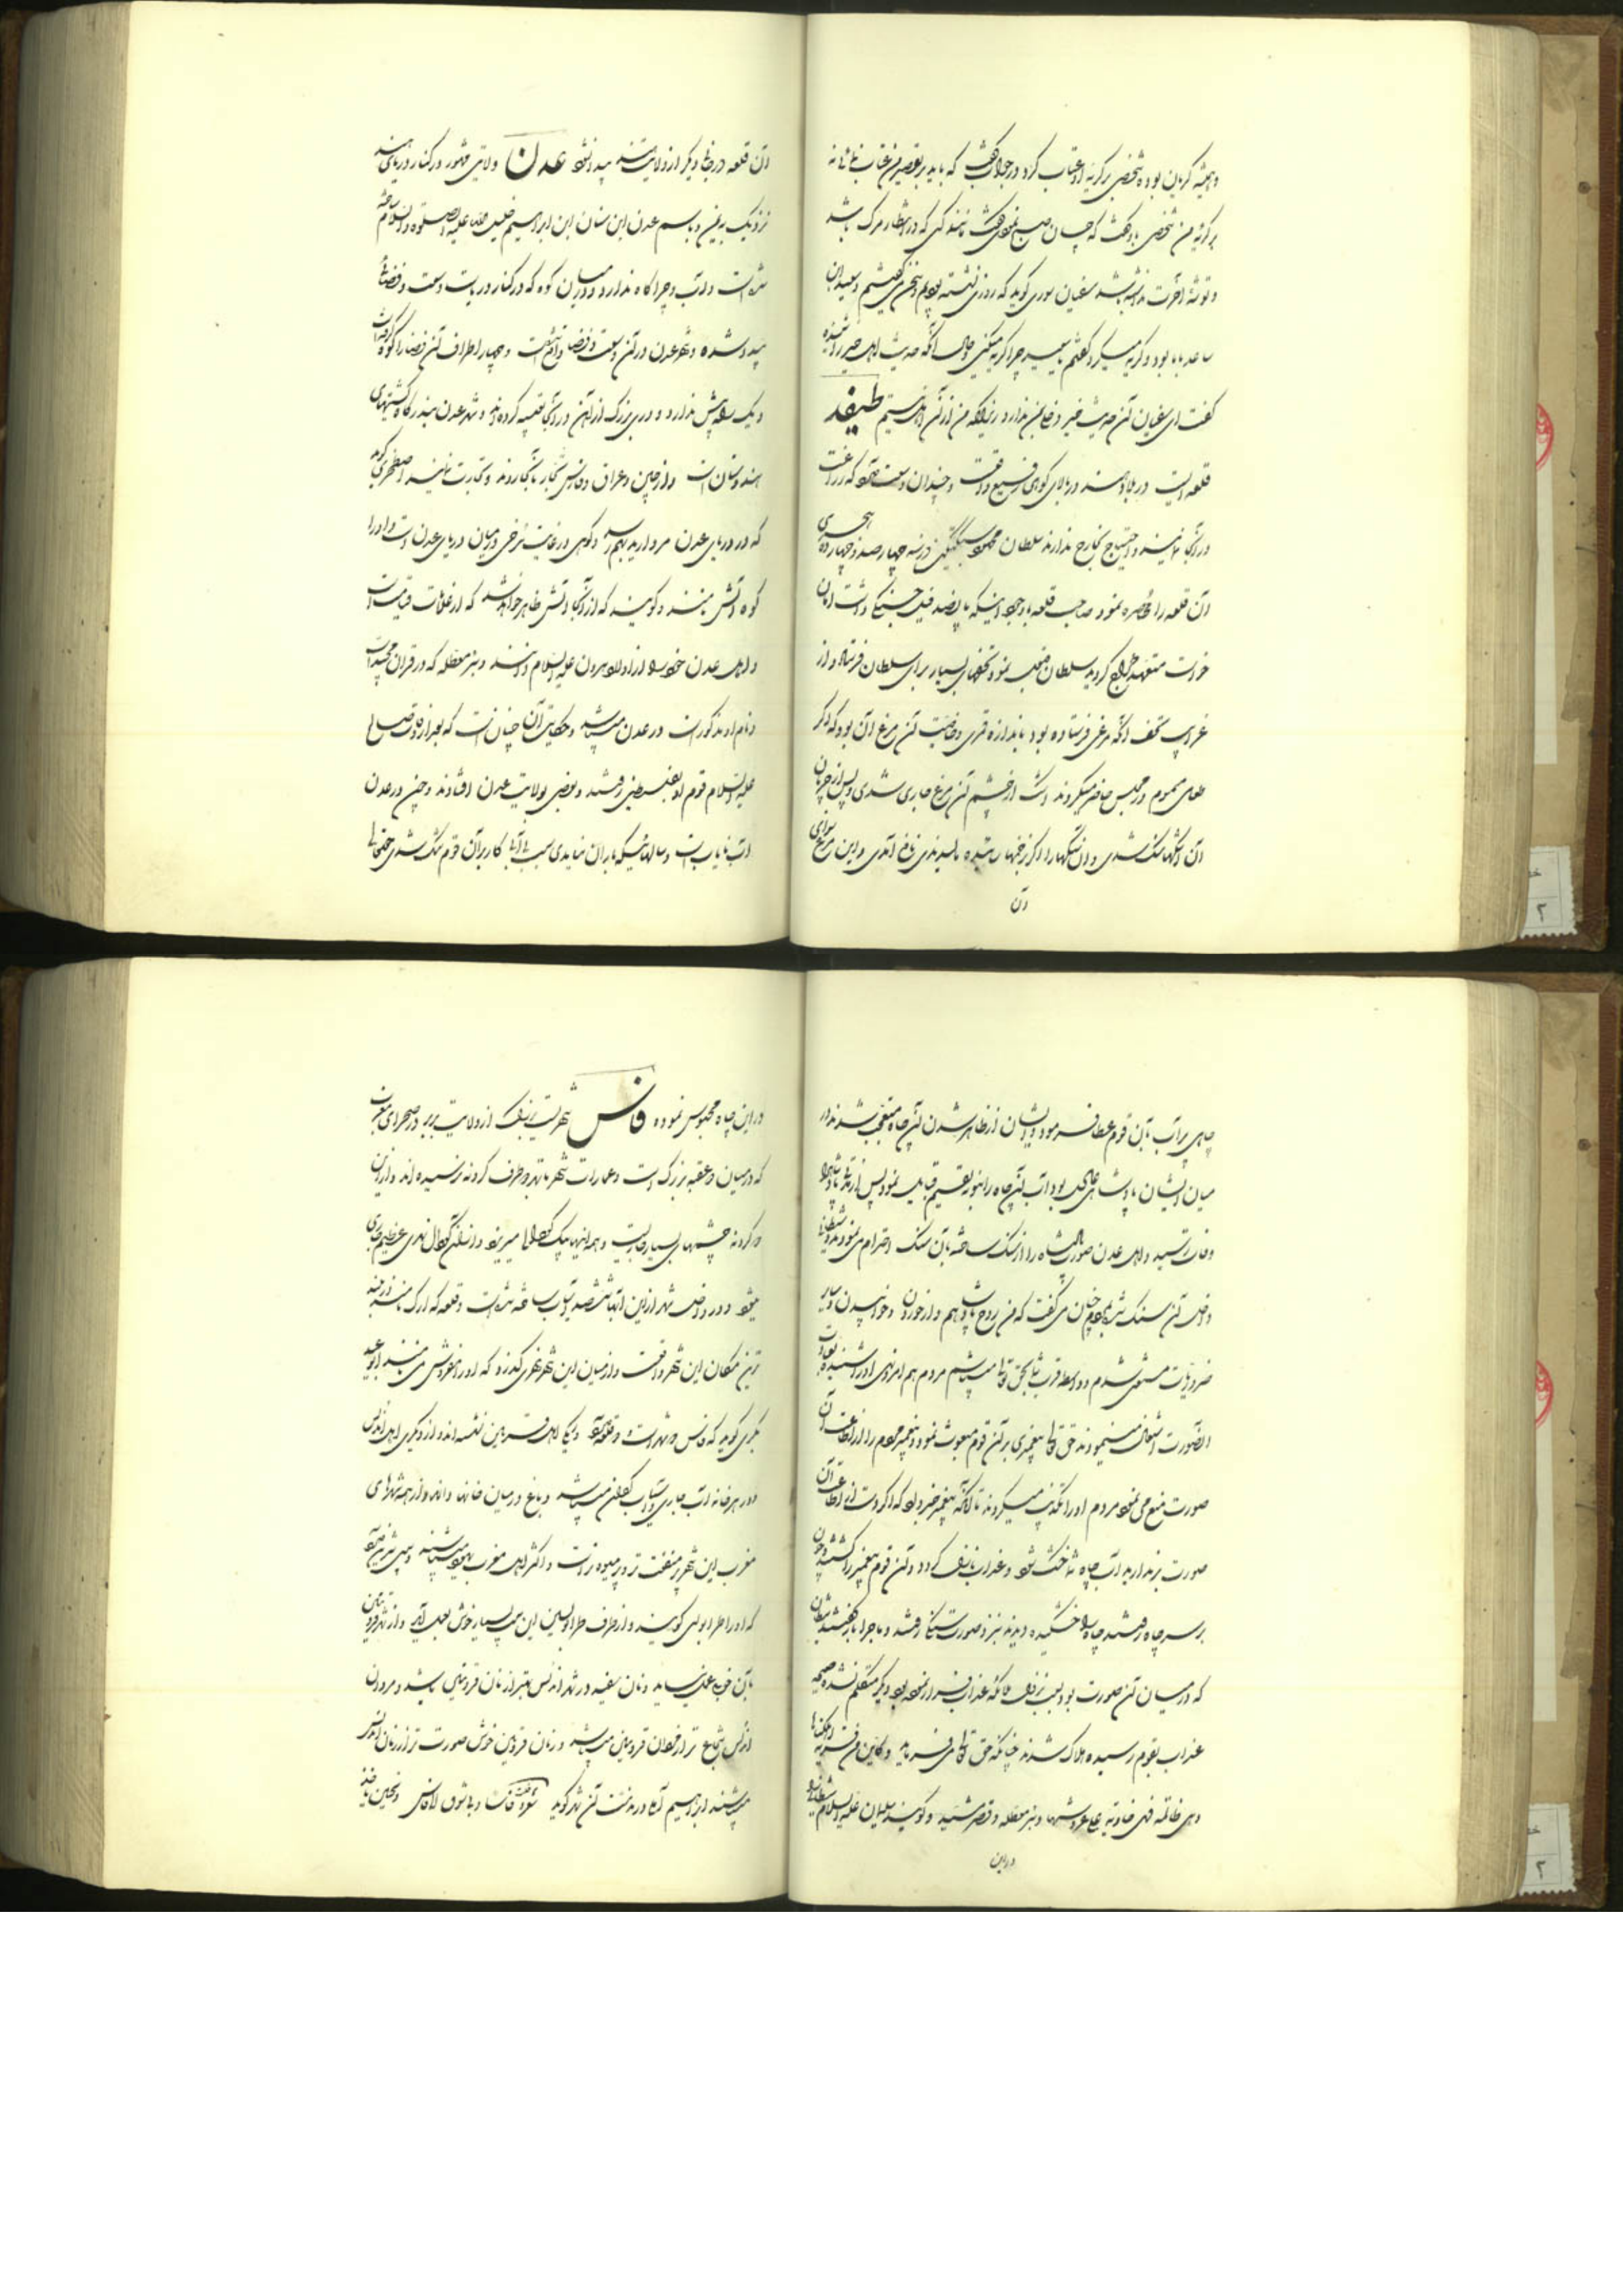 و همیشه گریان بوده شخصی بر گریه او عتاب کرد در جواب گفت که باید بر تقصیر من عتاب نمائی نه
بر گریه من شخصی باو گفت که چسان صبح نمودی گفت مانند کسی که در انتظار مرک باشد
و توشۀ آخرت نداشته باشد سفیان ثوری گوید که روزی نشسته بودیم و سخن میگفتیم و سعید ابن
سائب با ما بود و گریه میکرد گفتم یا سعید چرا گریه میکنی و حال آنکه حدیث اهل خیر را شنیده
گفت ای سفیان آن حدیث خیر و فایده ندارد زیرا که من از آن اهل نیستم طیفند
قلعه ایست در بلاد هند در بالای کوهی رفیع واقعست و چندان وسعت دارد که زراعت
در آنجا نمایند و احتیاج بخارج ندارند سلطان محمود سبکتکین در سنه چهار صد و چهارده هجری
آن قلعه را محاصره نمود صاحب قلعه با وجود اینکه پانصد فیل جنگی داشت امان
خواست متعهد خراج گردید سلطان قبول نمود تحفهای بسیار برای سلطان فرستاد از
غرایب تحف آنکه مرغی فرستاده بود باندازه قمری و خاصیت آن مرغ آن بود که اگر
طعام مسموم در مجلس حاضر میکردند اشک از چشم آن مرغ جاری شدی و پس از جریان
آن اشکها سنک شدی و آن سنگها را اگر بزخمها مالیدندی نافع آمدی و این مرغ سوای
آن
آن قلعه در جای دیگر از ولایت هند پیدا نشود عدن ولایتی مشهور در کنار دریای هند
نزدیک به یمن و باسم عدن ابن سنان ابن ابراهیم خلیل الله علیه الصلوة والسلام ساخته
شده است و آب و چراگاه ندارد و در میان کوه که در کنار دریاست وسعت و فضائی
پیدا شده و شهر عدن در آن وسعت و فضا واقعست و چهار اطراف آن فضا را کوه گرفته است
و یک راه بیش ندارد و دری بزرک از آهن در آنجا تعبیه کرده اند و شهر عدن بندرگاه کشتیهای
هندوستان است و از چین و عراق و فارس تجار بآنجا روند و تجارت نمایند اصطخری گوید
که در دریای عدن مروارید بهم رسد و کوهی در غایت سرخی در میان دریای عدن است و او را
کوه آتش میگویند و گویند که از آنجا آتش ظاهر خواهد شد که از علامات قیامت است
و اهل عدن خود را از اولاد هرون علیه السلام دانند و بئر معطله که در قران مجید است
و نام او مذکور است در عدن میباشد و حکایت آن چنان است که بعد از وفات صالح
علیه السلام قوم او بفلسطین رفتند و بعضی بولایت عدن افتادند و چون در عدن
آب نایاب است و سالهائیکه باران نیامدی بسبب بی آبی کار بر آن قوم تنک شدی حقتعالی
چاهی پر آب بآن قوم عطا فرمود و ایشان از ظاهر شدن آن چاه متعجب شدند و در
میان ایشان پادشاهی عادل بود آب آن چاه را بنوبه تقسیم قبایل نمود پس از مدتی پادشاه
وفات رسید و اهل عدن صورت پادشاه را از سنک ساخته بآن سنک احترام می نمودند و شیطان با
داخل آن سنک شده بمردم چنان می گفت که من روح پادشاهم و از خوردن و خوابیدن و سایر
ضروریات مستغنی شدم و واسطه قرب شما بحق تعالی میباشم مردم هم امر و نهی او را شنیده بعبادت
الصورت اشتغال مینمودند حق تعالی پیغمبری بر آن قوم مبعوث نمود و پیغمبر مردم را از اطاعت آن
صورت منع می نمود مردم او را تکذیب میکردند تا آنکه پیغمبر خبر داد که اگر دست از اطاعت آن
صورت بر ندارید آب چاه شما خشک شود و عذاب نازل گردد و آن قوم پیغمبر را کشتند و چون
بر سر چاه رفتند چاه را خشکیده دیدند نزد صورت سنگی رفتند و ماجرا باز گفتند شیطان
که در میان آن صورت بود بسبب نزول ملائکه عذاب فرار نموده بود و دیگر متکلم نشده صیحه
عذاب بقوم رسیده هلاک شدند چنانکه حق تعالی می فرماید و کاین من قریة اهلکناها
و هی ظالمة فهی خاویة علی عروشها و بئر معطلة و قصر مشید و گویند سلیمان علیه السلام شیاطین را
در این
در این چاه محبوس نموده فاس شهریست بزرک از ولایت بربر در صحرای مغرب
که در میان دو عقبه بزرک است و عمارات شهر تا بهر دو طرف گردنه رسیده اند و از این
دو گردنه چشمهای بسیار جاریست و همه اینها بیک گودال میریزد و از آن گودال نهری عظیم جاری
میشود و در داخل شهر از این آبها ششصد آسیاب ساخته شده است و قلعه که ارک نامند در بلند
ترین مکان این شهر واقعست و از میان این شهر نهری گذرد که او را مفروش می نامند ابو عبید
بکری گوید که فاس دو شهر است و قلعه دارد یکی اهل قیروان نشسته اند و از دیگری اهل اندلس
و در هر خانه آب جاری و آسیاب کوچک میباشد و باغ در میان خانها دارند و از همه شهرهای
مغرب این شهر پر منفعت تر و پر میوه تر است و اکثر اهل مغرب یهود میباشند و سیبی شیرین دارد
که او را طرابلسی گویند و از طرف طرابلس این سیب بسیار خوش بعمل آید و از شهر قزوین
بآن خوبی بعمل نیاید و نان سفید در شهر اندلس بهتر از نان قزوین باشد و مردان
اندلس شجاع تر از مردان قزوین میباشد و زنان قزوین خوش صورت تر از زنان اندلس
میباشند ابراهیم در مذمت آن شهر گوید